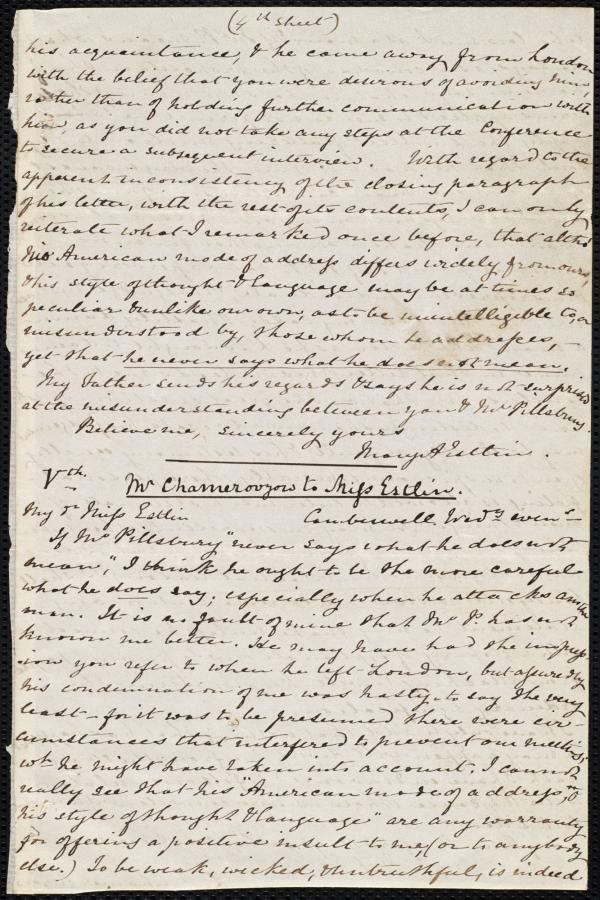 (4th Sheet)
his acquaintance, & he came away from London
with the belief that you were desirous of avoiding him,
rather than of holding further communication with
him as you did not take any steps at the Conference
to secure a subsequent interview. With regard to the
apparent inconsistency of the closing paragraph
of his letter, with the rest of its contents, I can only
reiterate what I remarked once before, that altho'
the American mode of address differs widely from ours,
& his style of thought & language may be at times so
peculiar & unlike our own, as to be unintelligible to, or
misunderstood by, those whom he addresses, —
yet that he never says what he does not mean.
My Father sends his regards & says he is not surprised
at the misunderstanding between you & Mr. Pillsbury.
Believe me, sincerely yours
Mary A Estlin.
Vth.
Mr Chamerovzow to Miss Estlin.
My dr Miss Estlin Camberwell, Wedy even—
If Mr Pillsbury "never says what he does not
mean", I think he ought to be the more careful
what he does say; especially when he attacks another
man. It is no fault of mine that Mr P. has not
known me better. He may have had the impress-
ion you refer to when he left London, but assuredly
his condemnation of me was hasty to say the very
least — for it was to be presumed there were cir-
cumstances that interfered to prevent our meeting,
wh. he might have taken into account. I cannot
really see that his "American mode of address, or
his style of thought & language" are any warranty
for offering a positive insult to me, (or to anybody
else.) To be weak, wicked, & untruthful, is indeed